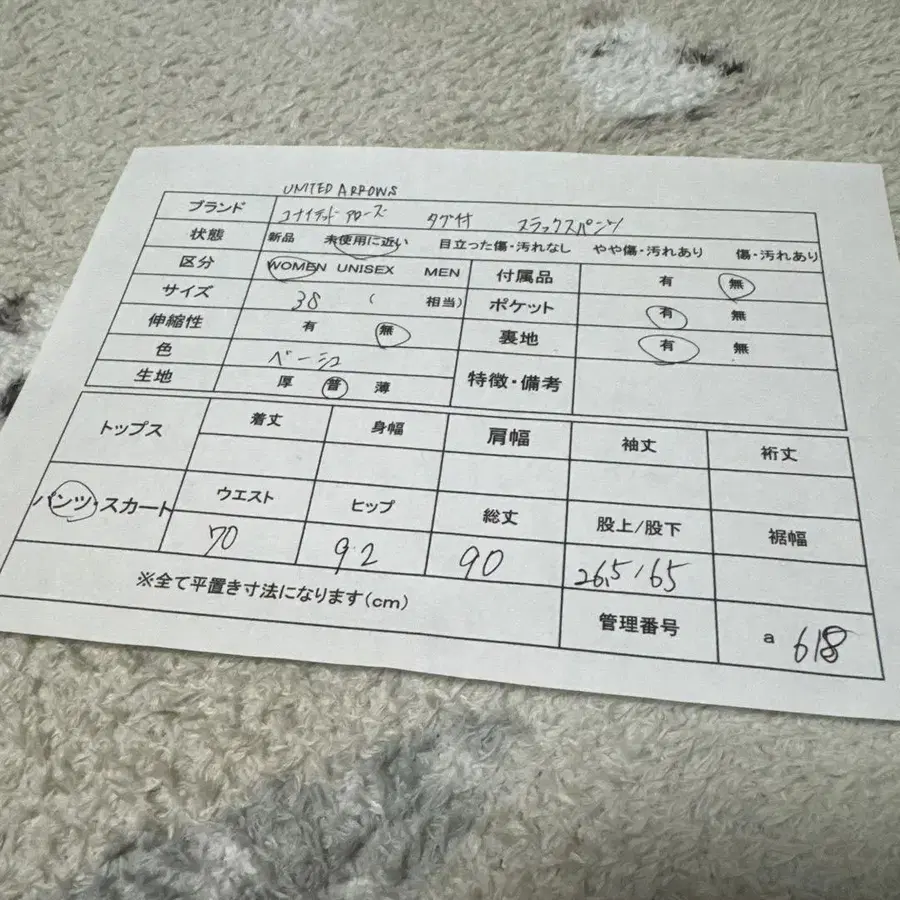 UNITED ARROWS
ブランド ユナイテッド アローズ タグ付 スラックスパンツ
状態 新品 未使用に近い 目立った傷・汚れなし やや傷・汚れあり 傷・汚れあり
区分 WOMEN UNISEX MEN 付属品 有 無
サイズ 38 ( 相当) ポケット 有 無
伸縮性 有 無 裏地 有 無
色 ベージュ 特徴・備考
生地 厚 普 薄
トップス 着丈 身幅 肩幅 袖丈 裄丈
パンツ・スカート ウエスト ヒップ 総丈 股上/股下 裾幅
70 92 90 26.5/65
※全て平置き寸法になります(cm) 管理番号 a 618